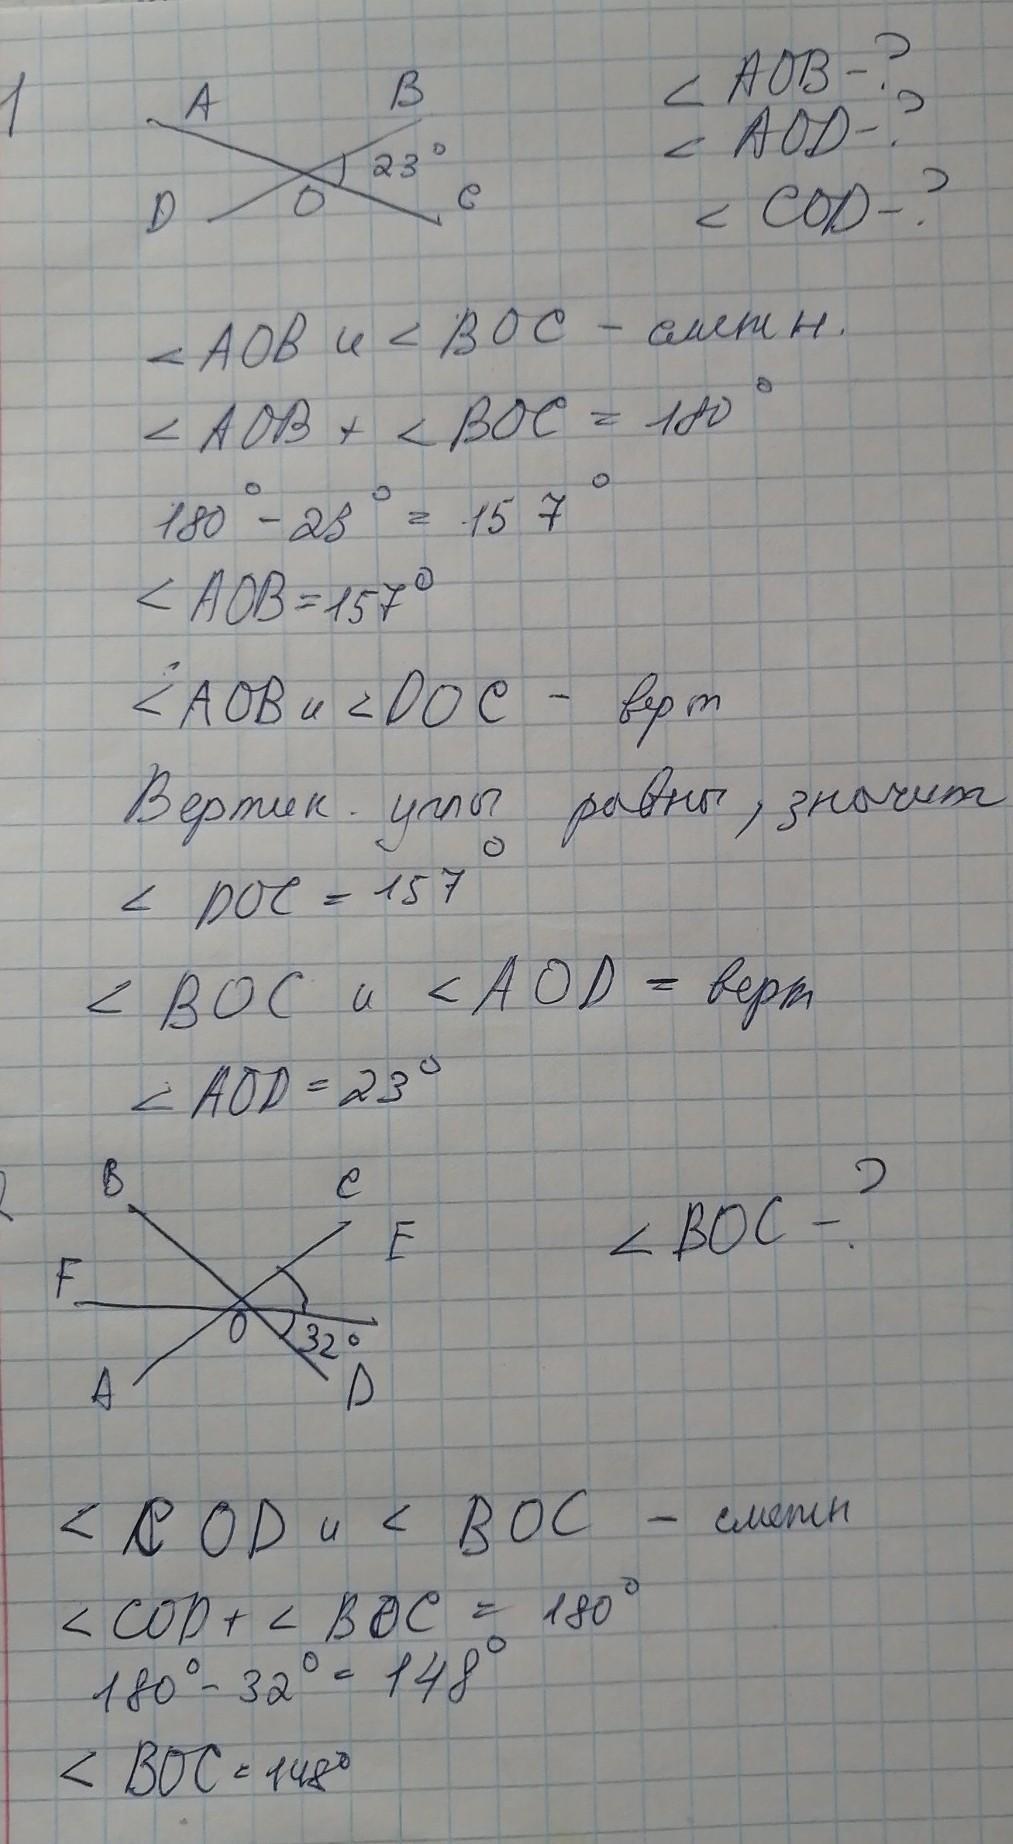 1
A B < AOB - ?
23° < AOD - ?
D O C < COD - ?
< AOB и < BOC - смежн.
< AOB + < BOC = 180°
180° - 23° = 157°
< AOB = 157°
< AOB и < DOC - верт
Вертик. углы равны, значит
< DOC = 157°
< BOC и < AOD = верт
< AOD = 23°
B C < BOC - ?
F E
O 32°
A D
< COD и < BOC - смежн
< COD + < BOC = 180°
180° - 32° = 148°
< BOC = 148°